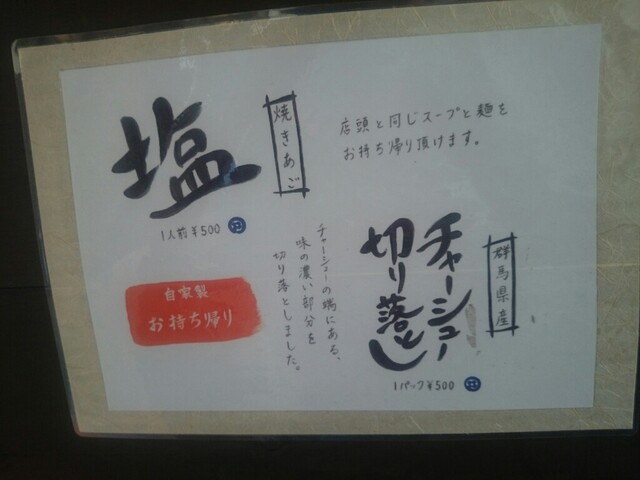 焼きあご
塩
1人前¥500
店頭と同じスープと麺を
お持ち帰り頂けます。
群馬県産
チャーシュー
切り落とし
1パック¥500
チャーシューの端にある、
味の濃い部分を
切り落としました。
自家製
お持ち帰り